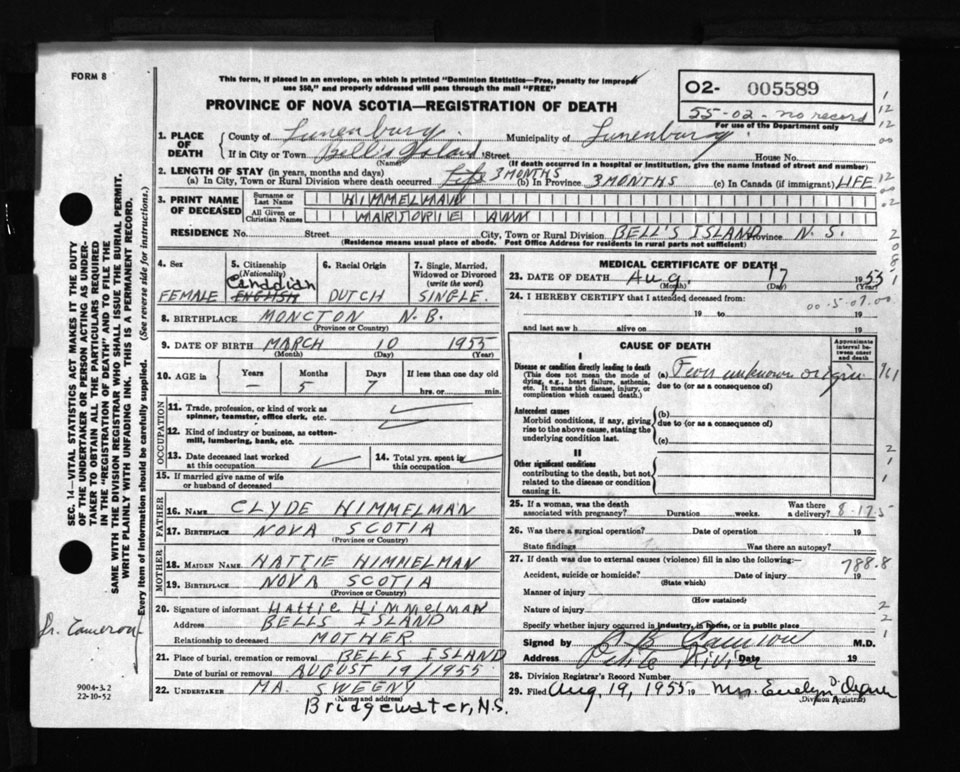 FORM 8
This form, if placed in an envelope, on which is printed "Dominion Statistics—Free, penalty for improper
use $50," and properly addressed will pass through the mail "FREE"
O2- 005589
55-02-no record
For use of the Department only
PROVINCE OF NOVA SCOTIA—REGISTRATION OF DEATH
1. PLACE OF DEATH County of Lunenburg Municipality of Lunenburg
If in City or Town Bell's Island Street House No.
(Name) (If death occurred in a hospital or institution, give the name instead of street and number)
2. LENGTH OF STAY (in years, months and days)
(a) In City, Town or Rural Division where death occurred Life 3 MONTHS (b) In Province 3 MONTHS (c) In Canada (if immigrant) LIFE
3. PRINT NAME OF DECEASED Surname or Last Name HIMMELMAN
All Given or Christian Names MARJORIE ANN
RESIDENCE No. Street City, Town or Rural Division BELL'S ISLAND Province N. S.
(Residence means usual place of abode. Post Office Address for residents in rural parts not sufficient)
4. Sex FEMALE
5. Citizenship (Nationality) Canadian ENGLISH
6. Racial Origin DUTCH
7. Single, Married, Widowed or Divorced (write the word) SINGLE.
8. BIRTHPLACE MONCTON N.B.
(Province or Country)
9. DATE OF BIRTH MARCH 10 1955
(Month) (Day) (Year)
10. AGE in Years Months Days If less than one day old
— 5 7 hrs. or min.
OCCUPATION
11. Trade, profession, or kind of work as spinner, teamster, office clerk, etc.
12. Kind of industry or business, as cotton-mill, lumbering, bank, etc.
13. Date deceased last worked at this occupation 14. Total yrs. spent in this occupation
15. If married give name of wife or husband of deceased
FATHER
16. NAME CLYDE HIMMELMAN
17. BIRTHPLACE NOVA SCOTIA
(Province or Country)
MOTHER
18. MAIDEN NAME HATTIE HIMMELMAN
19. BIRTHPLACE NOVA SCOTIA
(Province or Country)
20. Signature of informant Hattie HIMMELMAN
Address BELLS ISLAND
Relationship to deceased MOTHER
21. Place of burial, cremation or removal BELLS ISLAND
Date of burial or removal AUGUST 19/1955
22. UNDERTAKER MA. SWEENY
(Name and address)
Bridgewater, N.S.
MEDICAL CERTIFICATE OF DEATH
23. DATE OF DEATH Aug 17 1955
(Month) (Day) (Year)
24. I HEREBY CERTIFY that I attended deceased from:
00-5-07.00
19 to 19
and last saw h alive on 19
CAUSE OF DEATH
Approximate interval between onset and death
I
Disease or condition directly leading to death
(This does not mean the mode of dying, e.g., heart failure, asthenia, etc. It means the disease, injury, or complication which caused death.)
(a) Fever unknown origin
due to (or as a consequence of)
Antecedent causes
Morbid conditions, if any, giving rise to the above cause, stating the underlying condition last.
(b)
due to (or as a consequence of)
(c)
II
Other significant conditions
contributing to the death, but not related to the disease or condition causing it.
25. If a woman, was the death associated with pregnancy? Duration weeks. Was there a delivery? 8-17.5
26. Was there a surgical operation? Date of operation 19
State findings Was there an autopsy?
27. If death was due to external causes (violence) fill in also the following:—
788.8
Accident, suicide or homicide? Date of injury 19
(State which)
Manner of injury
(How sustained)
Nature of injury
Specify whether injury occurred in industry, in home, or in public place
Signed by Cameron M.D.
Address Petite Riviere Date 19
28. Division Registrar's Record Number
29. Filed Aug, 19, 1955 19 Mrs. Evelyn
(Division Registrar)
SEC. 14—VITAL STATISTICS ACT MAKES IT THE DUTY
OF THE UNDERTAKER OR PERSON ACTING AS UNDER-
TAKER TO OBTAIN ALL THE PARTICULARS REQUIRED
IN THE "REGISTRATION OF DEATH" AND TO FILE THE
SAME WITH THE DIVISION REGISTRAR WHO SHALL ISSUE THE BURIAL PERMIT.
WRITE PLAINLY WITH UNFADING INK. THIS IS A PERMANENT RECORD.
Every item of information should be carefully supplied. (See reverse side for instructions.)
Dr. Cameron
9004-3.2
22-10-52